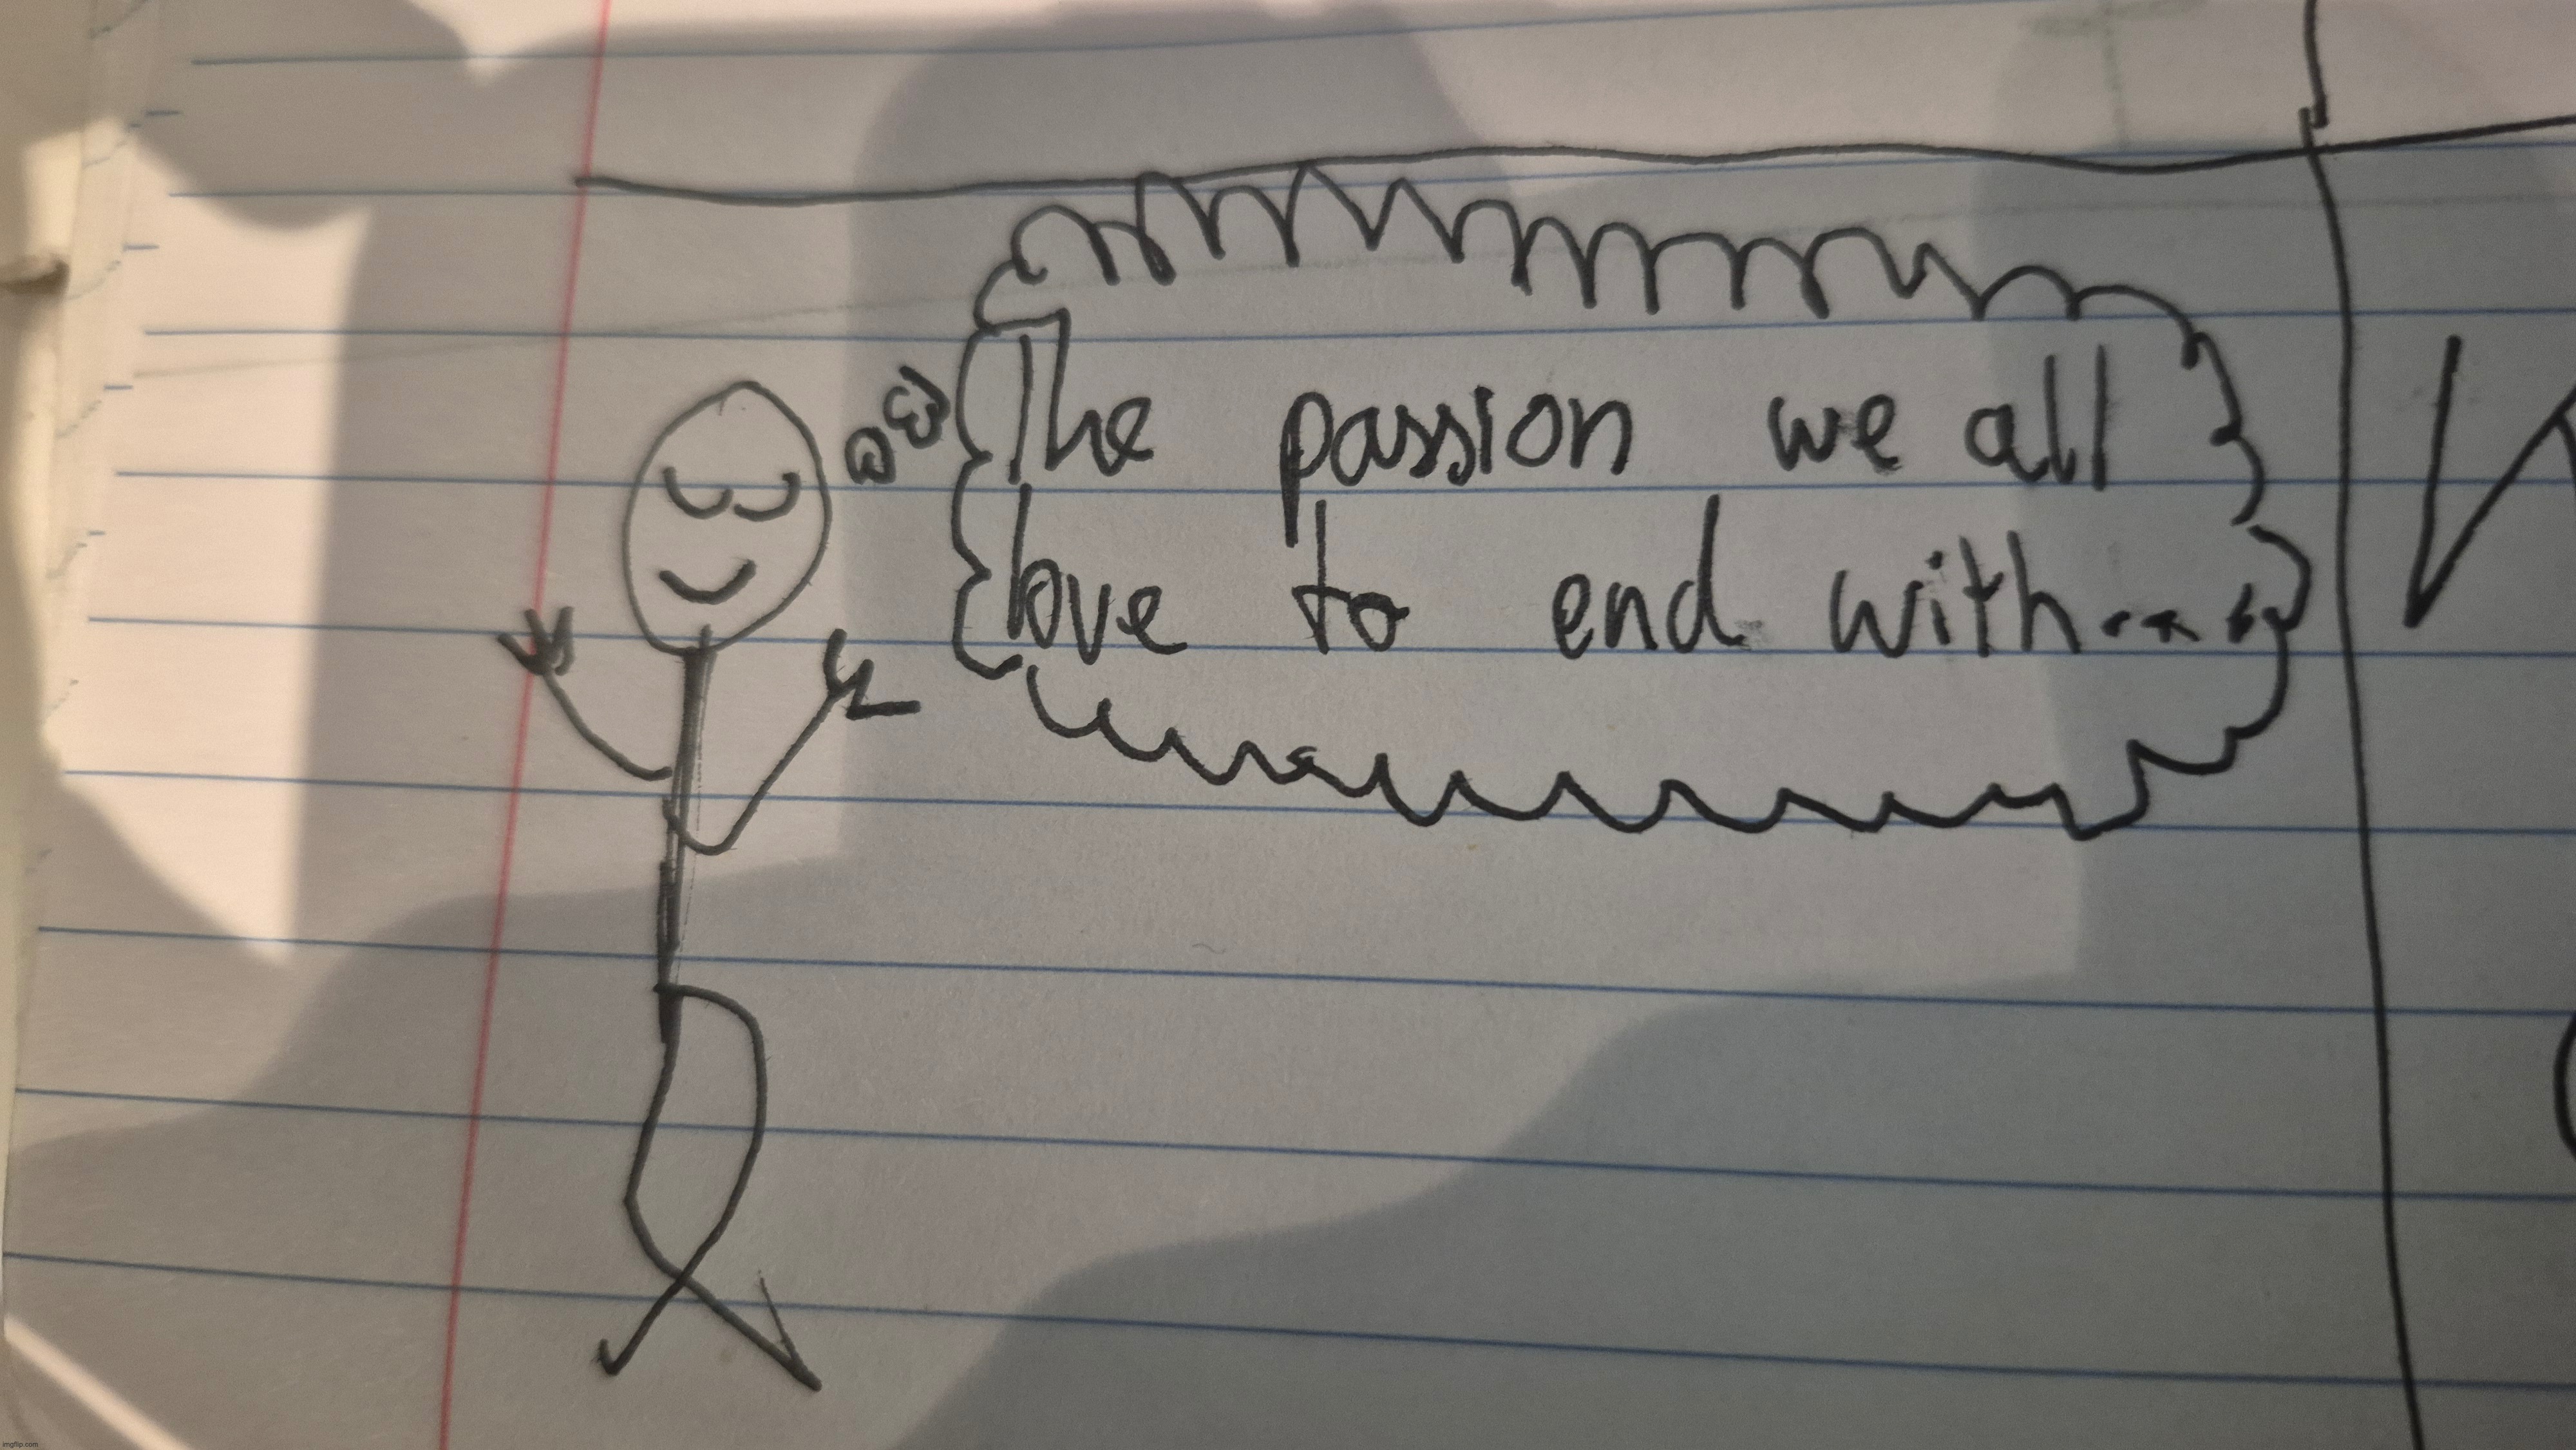 The passion we all
love to end with...
imgflip.com